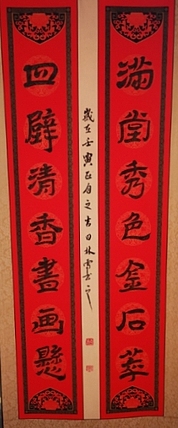 滿堂秀色金石萃
四壁清香書画懸
歲在壬寅正月之吉日林